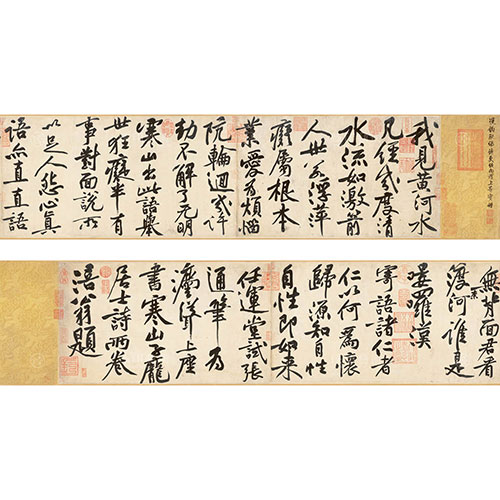 我見黃河水
凡經幾度清
水流如激箭
人世若浮萍
癡屬根本
業愛為煩惱
阬輪迴幾許
劫不解了元明
寒山出此語舉
世狂癡半有
事對面說所
以足人怨心真
語亦直直語
無背面君看
渡奈河誰是
嘍囉漢
寄語諸仁者
仁以何為懷
歸源知自性
自性即如來
任運堂試張
通筆為
聳上座
書寒山子龐
居士詩兩卷
涪翁題